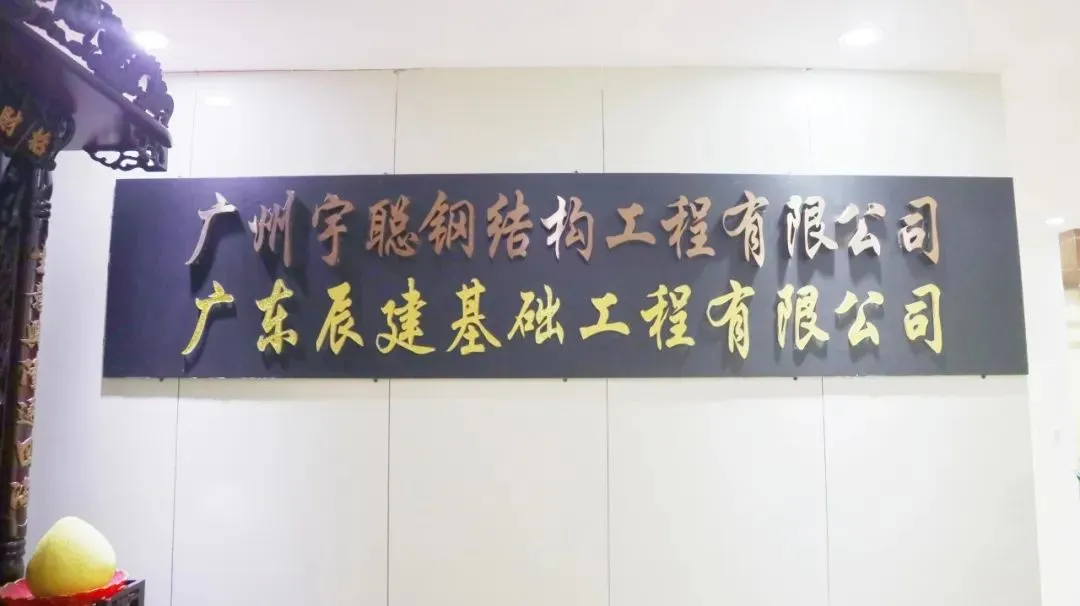 广州宇聪钢结构工程有限公司
广东辰建基础工程有限公司
财